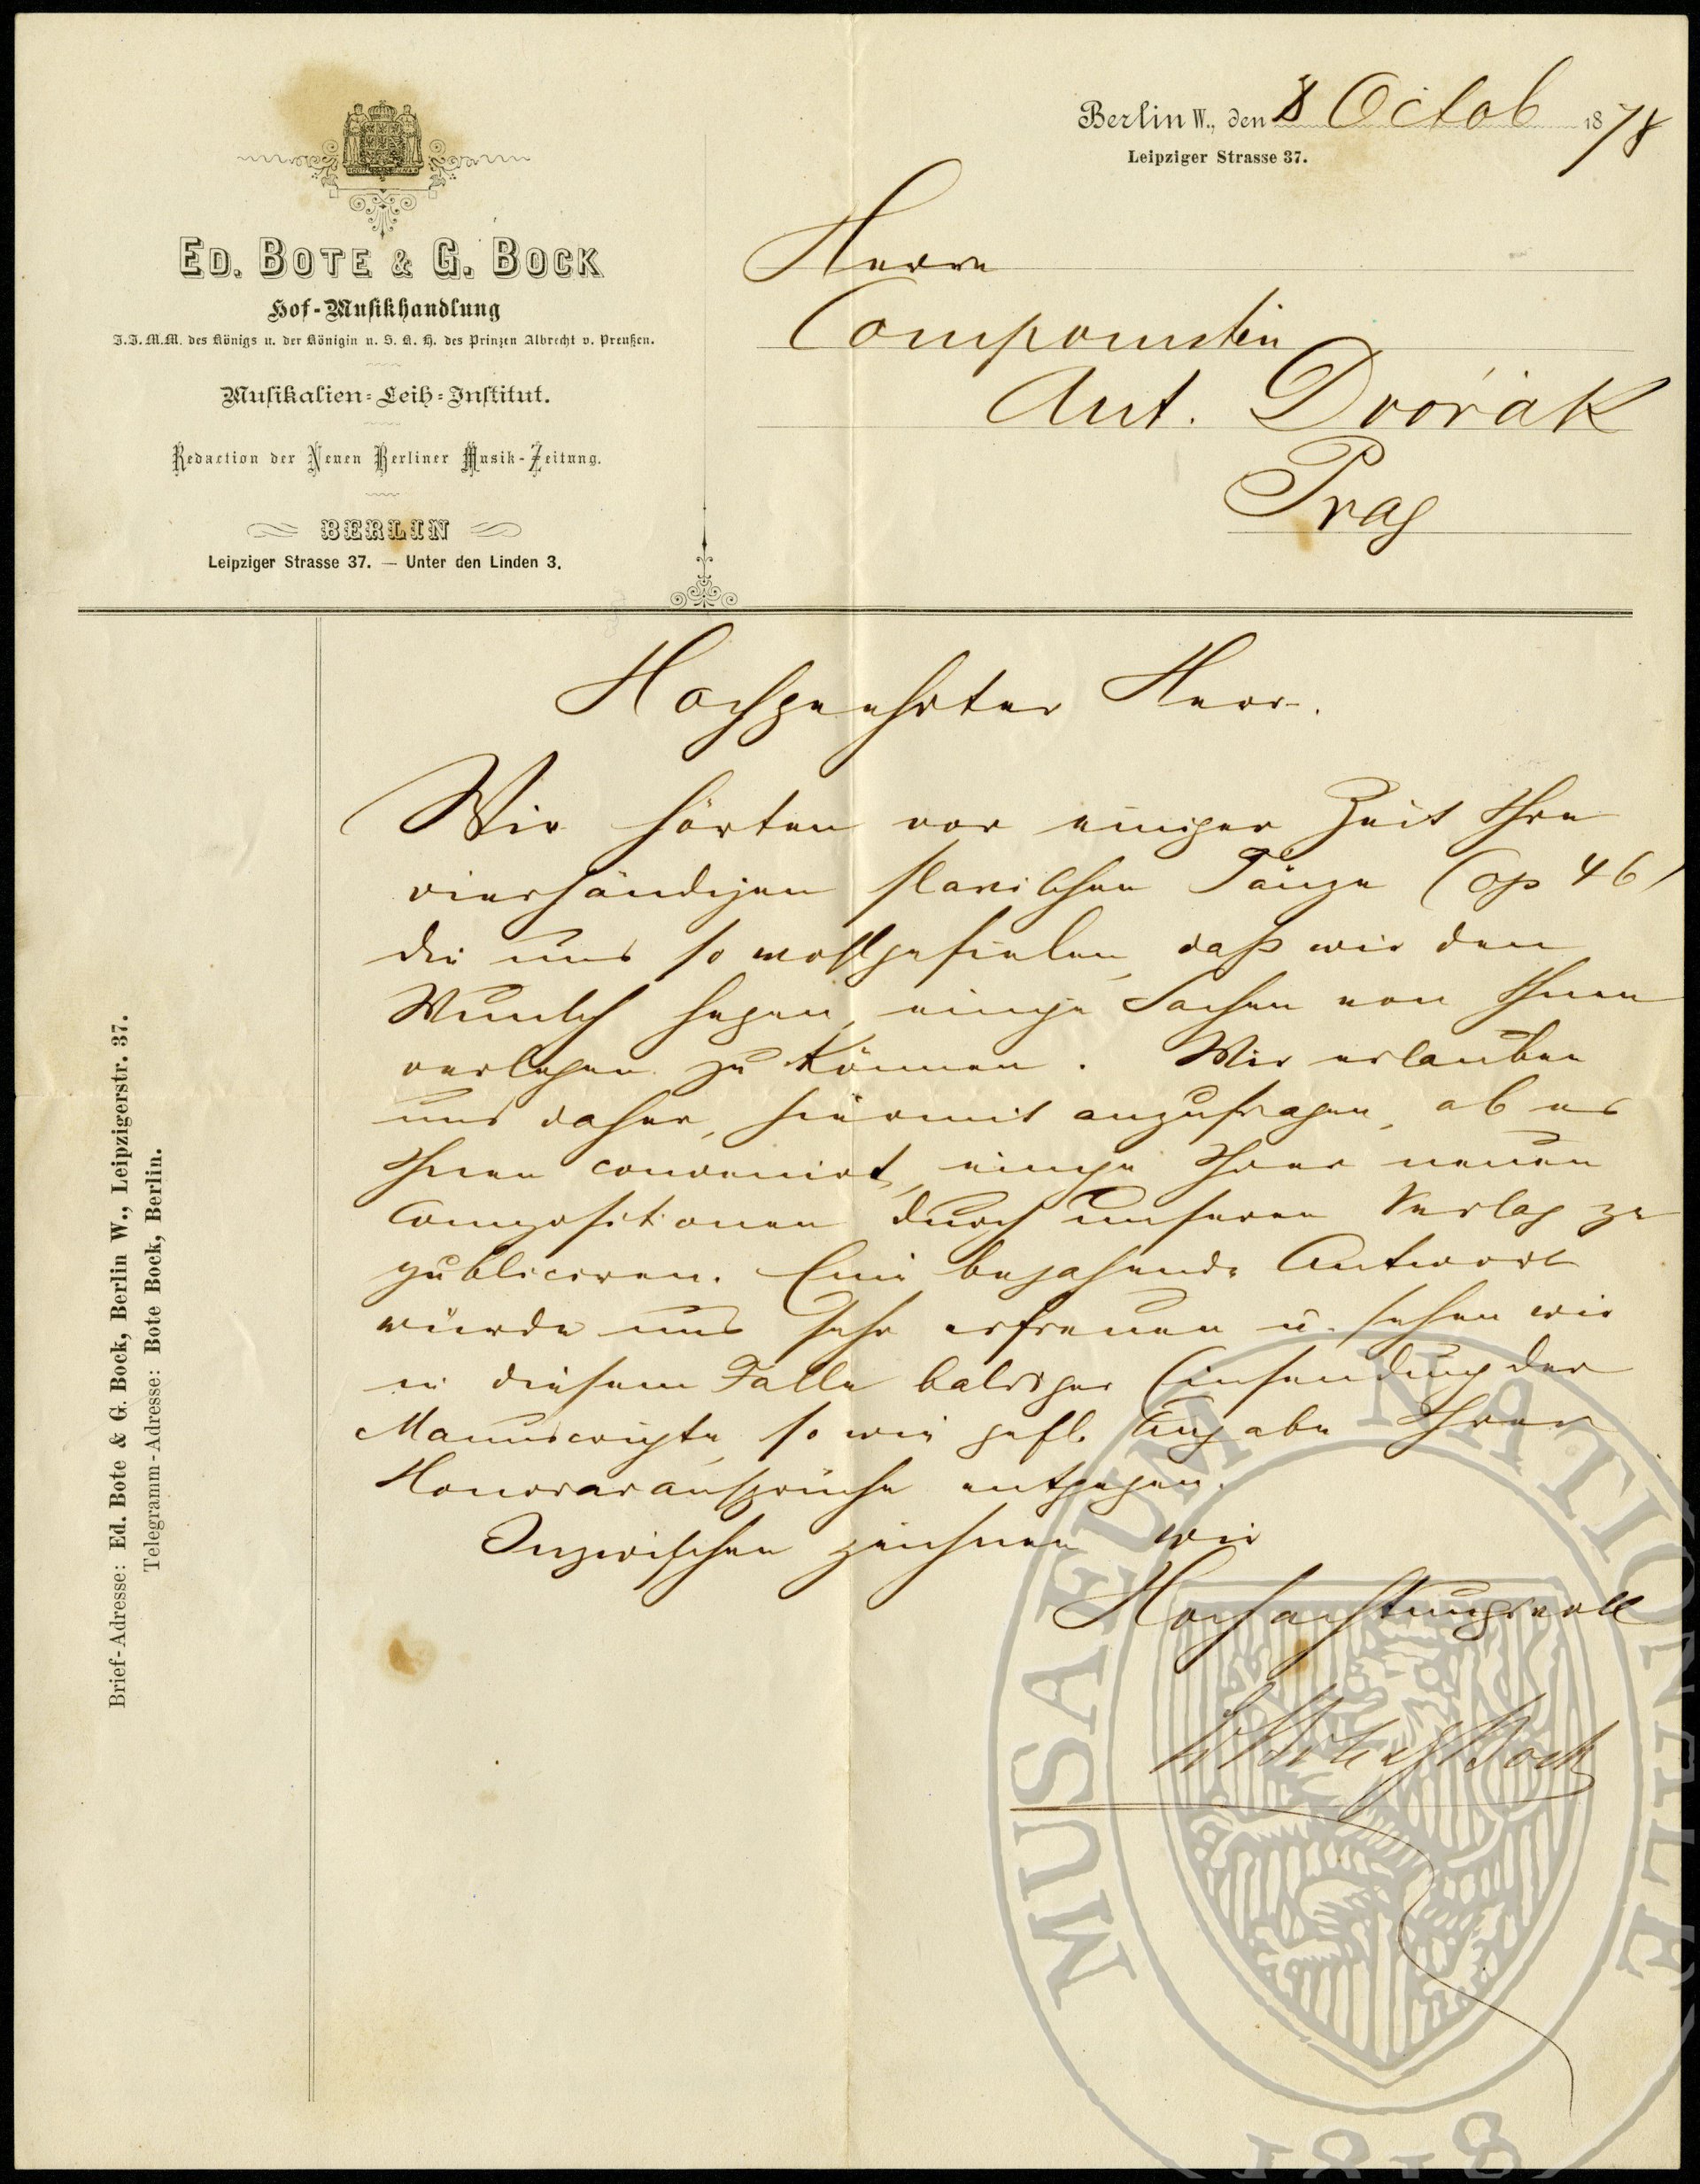 Berlin W., den 8 Octob 1878
Leipziger Strasse 37.
ED. BOTE & G. BOCK
Hof-Musikhandlung
J.J.M.M. des Königs u. der Königin u. S. K. H. des Prinzen Albrecht v. Preußen.
Musikalien-Leih-Institut.
Redaction der Neuen Berliner Musik-Zeitung.
BERLIN
Leipziger Strasse 37. — Unter den Linden 3.
Herrn
Componisten
Ant. Dvořák
Prag
Brief-Adresse: Ed. Bote & G. Bock, Berlin W., Leipzigerstr. 37.
Telegramm-Adresse: Bote Bock, Berlin.
Hochgeehrter Herr.
Wir hörten vor einiger Zeit Ihre
vierhändigen slavischen Tänze (op 46)
die uns so wohlgefielen, daß wir den
Wunsch hegen, einige Sachen von Ihnen
verlegen zu können. Wir erlauben
uns daher, hiermit anzufragen, ob es
Ihnen convenirt, einige Ihrer neuen
Compositionen durch unseren Verlag zu
publiciren. Eine bejahende Antwort
würde uns sehr erfreuen u. sehen wir
in diesem Falle baldiger Einsendung der
Manuscripte, so wie gefl. Angabe Ihrer
Honoraransprüche entgegen.
Inzwischen zeichnen wir
Hochachtungsvoll
Ed Bote & G Bock
MUSAEUM NATIONALE
1818